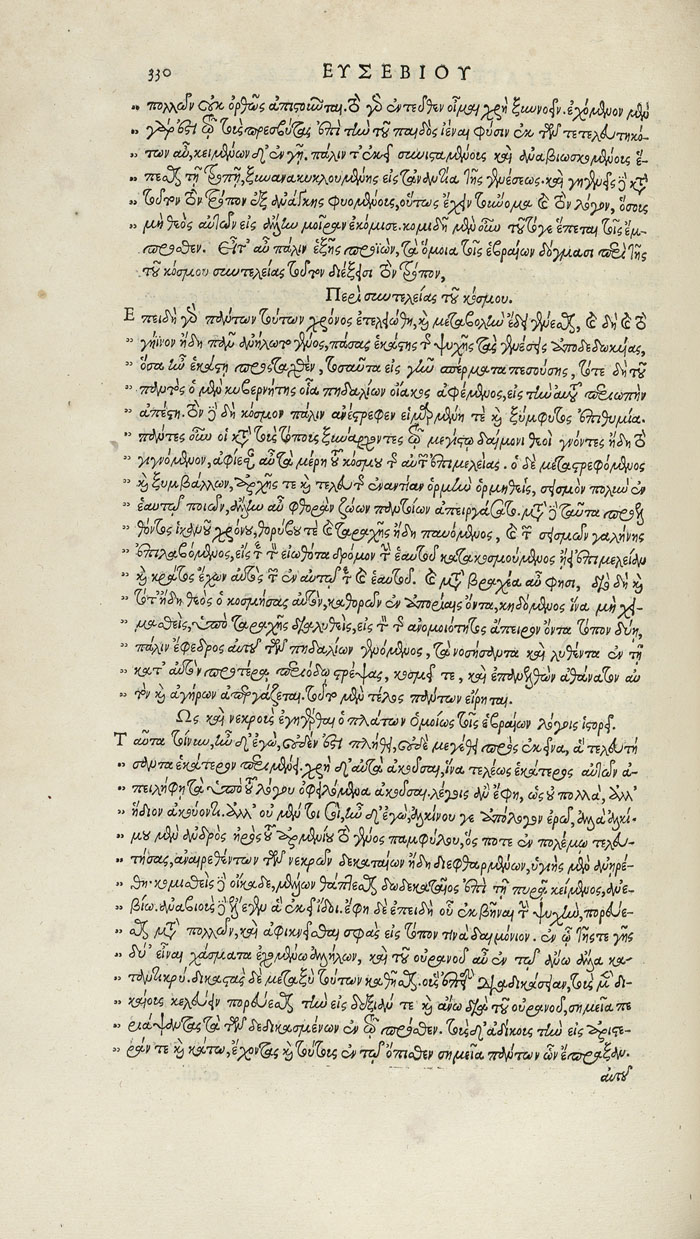 330 ΕΥΣΕΒΙΟΥ
πολλῶν οὐκ ὀρθῶς ἀπιστοῦνται. τὸ γὸ ἐντεῦθεν οἶμαι χρὴ ξυννοεῖν. ἐχόμενον μὲν
γάρ ἐστι τῷ τοὺς πρεσβύτας ἐπὶ τὴν τοῦ παιδὸς ἰέναι φύσιν ἐκ τῶν τετελευτηκό-
των αὖ, κειμένων δ' ἐν γῇ. πάλιν ἐκεῖ συνισταμένους καὶ ἀναβιωσκομένους ἕ-
πεσθαι τῇ τροπῇ, ξυνανακυκλουμένης εἰς τἀναντία τῆς γενέσεως. καὶ γηγενεῖς δὴ κατὰ
τοῦτον τὸν τρόπον ἐξ ἀνάγκης φυομένους, οὕτως ἔχειν τοὔνομα καὶ τὸν λόγον, ὅσους
μὴ θεὸς αὐτῶν εἰς ἄλλην μοῖραν ἐκόμισε. κομιδῇ μὲν οὖν τοῦτό γε ἕπεται τοῖς ἔμ-
προσθεν. Εἶτ' αὖ πάλιν ἑξῆς προϊὼν, τὰ ὅμοια τοῖς ἑβραίων δόγμασι περὶ τῆς
τοῦ κόσμου συντελείας τοῦτον διέξεισι τὸν τρόπον,
Περὶ συντελείας τοῦ κόσμου.
Ἐπειδὴ γὸ πάντων τούτων χρόνος ἐτελεώθη, καὶ μεταβολὴν ἔδει γενέσθαι, καὶ δὴ καὶ τὸ
γήϊνον ἤδη πᾶν ἀνήλωτο γένος, πάσας ἑκάστης τῆς ψυχῆς τὰς γενέσεις ἀποδεδωκυίας,
ὅσα ἦν ἑκάστῃ προσταχθὲν, τοσαῦτα εἰς γῆν σπέρματα πεσούσης, τότε δὴ τοῦ
παντὸς ὁ μὲν κυβερνήτης οἷα πηδαλίων οἴακος ἀφέμενος, εἰς τὴν αὑτοῦ περιωπὴν
ἀπέστη. τὸν δὲ δὴ κόσμον πάλιν ἀνέστρεφεν εἱμαρμένη τε καὶ ξύμφυτος ἐπιθυμία.
πάντες οὖν οἱ κατὰ τοὺς τόπους ξυνάρχοντες τῷ μεγίστῳ δαίμονι θεοὶ γνόντες ἤδη τὸ
γιγνόμενον, ἀφίεσαν αὖ τὰ μέρη τοῦ κόσμου τῆς αὐτῶν ἐπιμελείας. ὁ δὲ μεταστρεφόμενος
καὶ ξυμβάλλων, ἀρχῆς τε καὶ τελευτῆς ἐναντίαν ὁρμὴν ὁρμηθεὶς, σεισμὸν πολὺν ἐν
ἑαυτῷ ποιῶν, ἄλλην αὖ φθορὰν ζώων παντοίων ἀπειργάσατο. μετὰ δὲ ταῦτα προελ
θόντος ἱκανοῦ χρόνου, θορύβου τε καὶ ταραχῆς ἤδη παυόμενος, καὶ τῶν σεισμῶν γαλήνης
ἐπιλαβόμενος, εἰς τε τὸν εἰωθότα δρόμον τὸν ἑαυτοῦ κατακοσμούμενος ᾔει ἐπιμέλειαν
καὶ κράτος ἔχων αὐτὸς τῶν ἐν αὑτῷ τε καὶ ἑαυτοῦ. καὶ μετὰ βραχέα αὖ φησι, διὸ δὴ καὶ
τότ' ἤδη θεὸς ὁ κοσμήσας αὐτὸν, καθορῶν ἐν ἀπορίαις ὄντα, κηδόμενος ἵνα μὴ χει-
μασθεὶς, ὑπὸ ταραχῆς διαλυθεὶς, εἰς τὸν τῆς ἀνομοιότητος ἄπειρον ὄντα τόπον δύῃ,
πάλιν ἔφεδρος αὐτοῦ τῶν πηδαλίων γενόμενος, τὰ νοσήσαντα καὶ λυθέντα ἐν τῇ
κατ' αὐτὸν προτέρᾳ περιόδῳ στρέψας, κοσμεῖ τε, καὶ ἐπανορθῶν ἀθάνατον αὐ
τὸν καὶ ἀγήρων ἀπεργάζεται. τοῦτο μὲν τέλος πάντων εἴρηται.
Ὡς καὶ νεκροὺς ἐγηγέρθαι ὁ πλάτων ὁμοίως τοῖς ἑβραίων λόγοις ἱστορεῖ.
Ταῦτα τοίνυν, ἦν δ' ἐγὼ, οὐδέν ἐστι πλήθει, οὐδὲ μεγέθει πρὸς ἐκεῖνα, ἃ τελευτή
σαντα ἑκάτερον περιμένει. χρὴ δ' αὐτὰ ἀκοῦσαι, ἵνα τελέως ἑκάτερος αὐτῶν ἀ-
πειλήφῃ τὰ ὑπὸ τοῦ λόγου ὀφειλόμενα ἀκοῦσαι. λέγοις ἂν ἔφη, ὡς οὐ πολλὰ, ἀλλ'
ἥδιον ἀκούοντι. ἀλλ' οὐ μέν τοι σοι, ἦν δ' ἐγὼ, ἀλκίνου γε ἀπόλογον ἐρῶ, ἀλλὰ ἀλκί-
μου μὲν ἀνδρὸς ἠρὸς τοῦ ἀρμενίου τὸ γένος παμφύλου, ὅς ποτε ἐν πολέμῳ τελευ-
τήσας, ἀναιρεθέντων τῶν νεκρῶν δεκαταίων ἤδη διεφθαρμένων, ὑγιὴς μὲν ἀνῃρέ-
θη. κομισθεὶς δὲ οἴκαδε, μέλλων θάπτεσθαι δωδεκαταῖος ἐπὶ τῇ πυρᾷ κείμενος, ἀνε-
βίω. ἀναβιοὺς δὲ ἔλεγεν ἃ ἐκεῖ ἴδοι. ἔφη δὲ ἐπειδὴ οὗ ἐκβῆναι τὴν ψυχὴν, πορεύε-
σθαι μετὰ πολλῶν, καὶ ἀφικνεῖσθαι σφᾶς εἰς τόπον τινὰ δαιμόνιον. ἐν ᾧ τῆς τε γῆς
δύ' εἶναι χάσματα ἐχομένω ἀλλήλων, καὶ τοῦ οὐρανοῦ αὖ ἐν τῷ ἄνω ἄλλα κα-
ταντικρύ. δικαστὰς δὲ μεταξὺ τούτων καθῆσθαι. οὓς ἐπειδὴ διαδικάσειαν, τοὺς μὲν δι-
καίους κελεύειν πορεύεσθαι τὴν εἰς δεξιάν τε καὶ ἄνω διὰ τοῦ οὐρανοῦ, σημεῖα πε
ριάψαντας τὰ τῶν δεδικασμένων ἐν τῷ πρόσθεν. τοὺς δ' ἀδίκους τὴν εἰς ἀριστε-
ράν τε καὶ κάτω, ἔχοντας καὶ τούτους ἐν τῷ ὄπισθεν σημεῖα πάντων ὧν ἔπραξαν.
αὐτοῦ